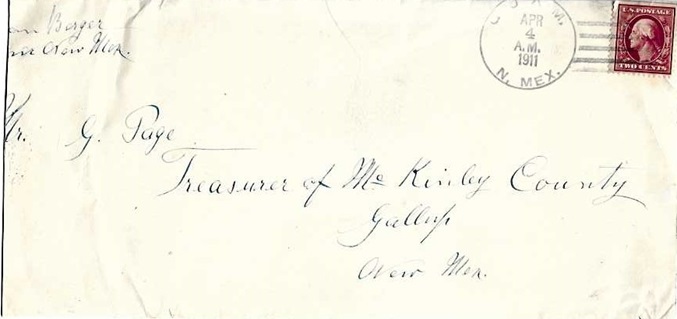 Berger
New Mex.
APR
4
A.M.
1911
N. MEX.
U.S. POSTAGE
TWO CENTS
Mr. G. Page
Treasurer of McKinley County
Gallup
New Mex.